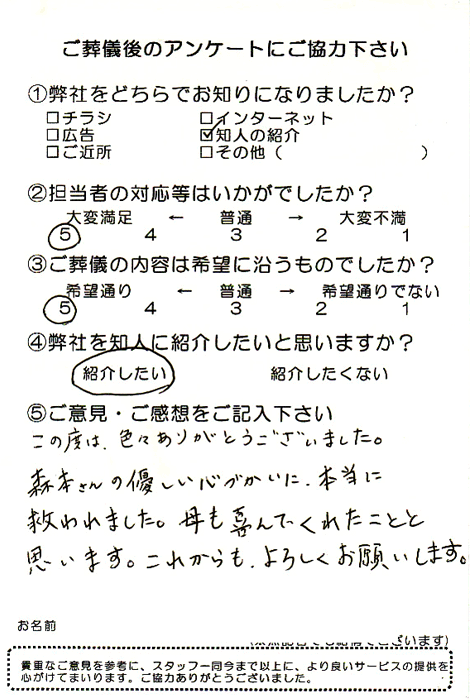 ご葬儀後のアンケートにご協力下さい
①弊社をどちらでお知りになりましたか？
□チラシ □インターネット
□広告 ☑知人の紹介
□ご近所 □その他（ ）
②担当者の対応等はいかがでしたか？
大変満足 ← 普通 → 大変不満
5 4 3 2 1
③ご葬儀の内容は希望に沿うものでしたか？
希望通り ← 普通 → 希望通りでない
5 4 3 2 1
④弊社を知人に紹介したいと思いますか？
紹介したい 紹介したくない
⑤ご意見・ご感想をご記入下さい
この度は、色々ありがとうございました。
森本さんの優しい心づかいに、本当に
救われました。母も喜んでくれたことと
思います。これからも、よろしくお願いします。
お名前
ございます)
貴重なご意見を参考に、スタッフ一同今まで以上に、より良いサービスの提供を
心がけてまいります。ご協力ありがとうございました。